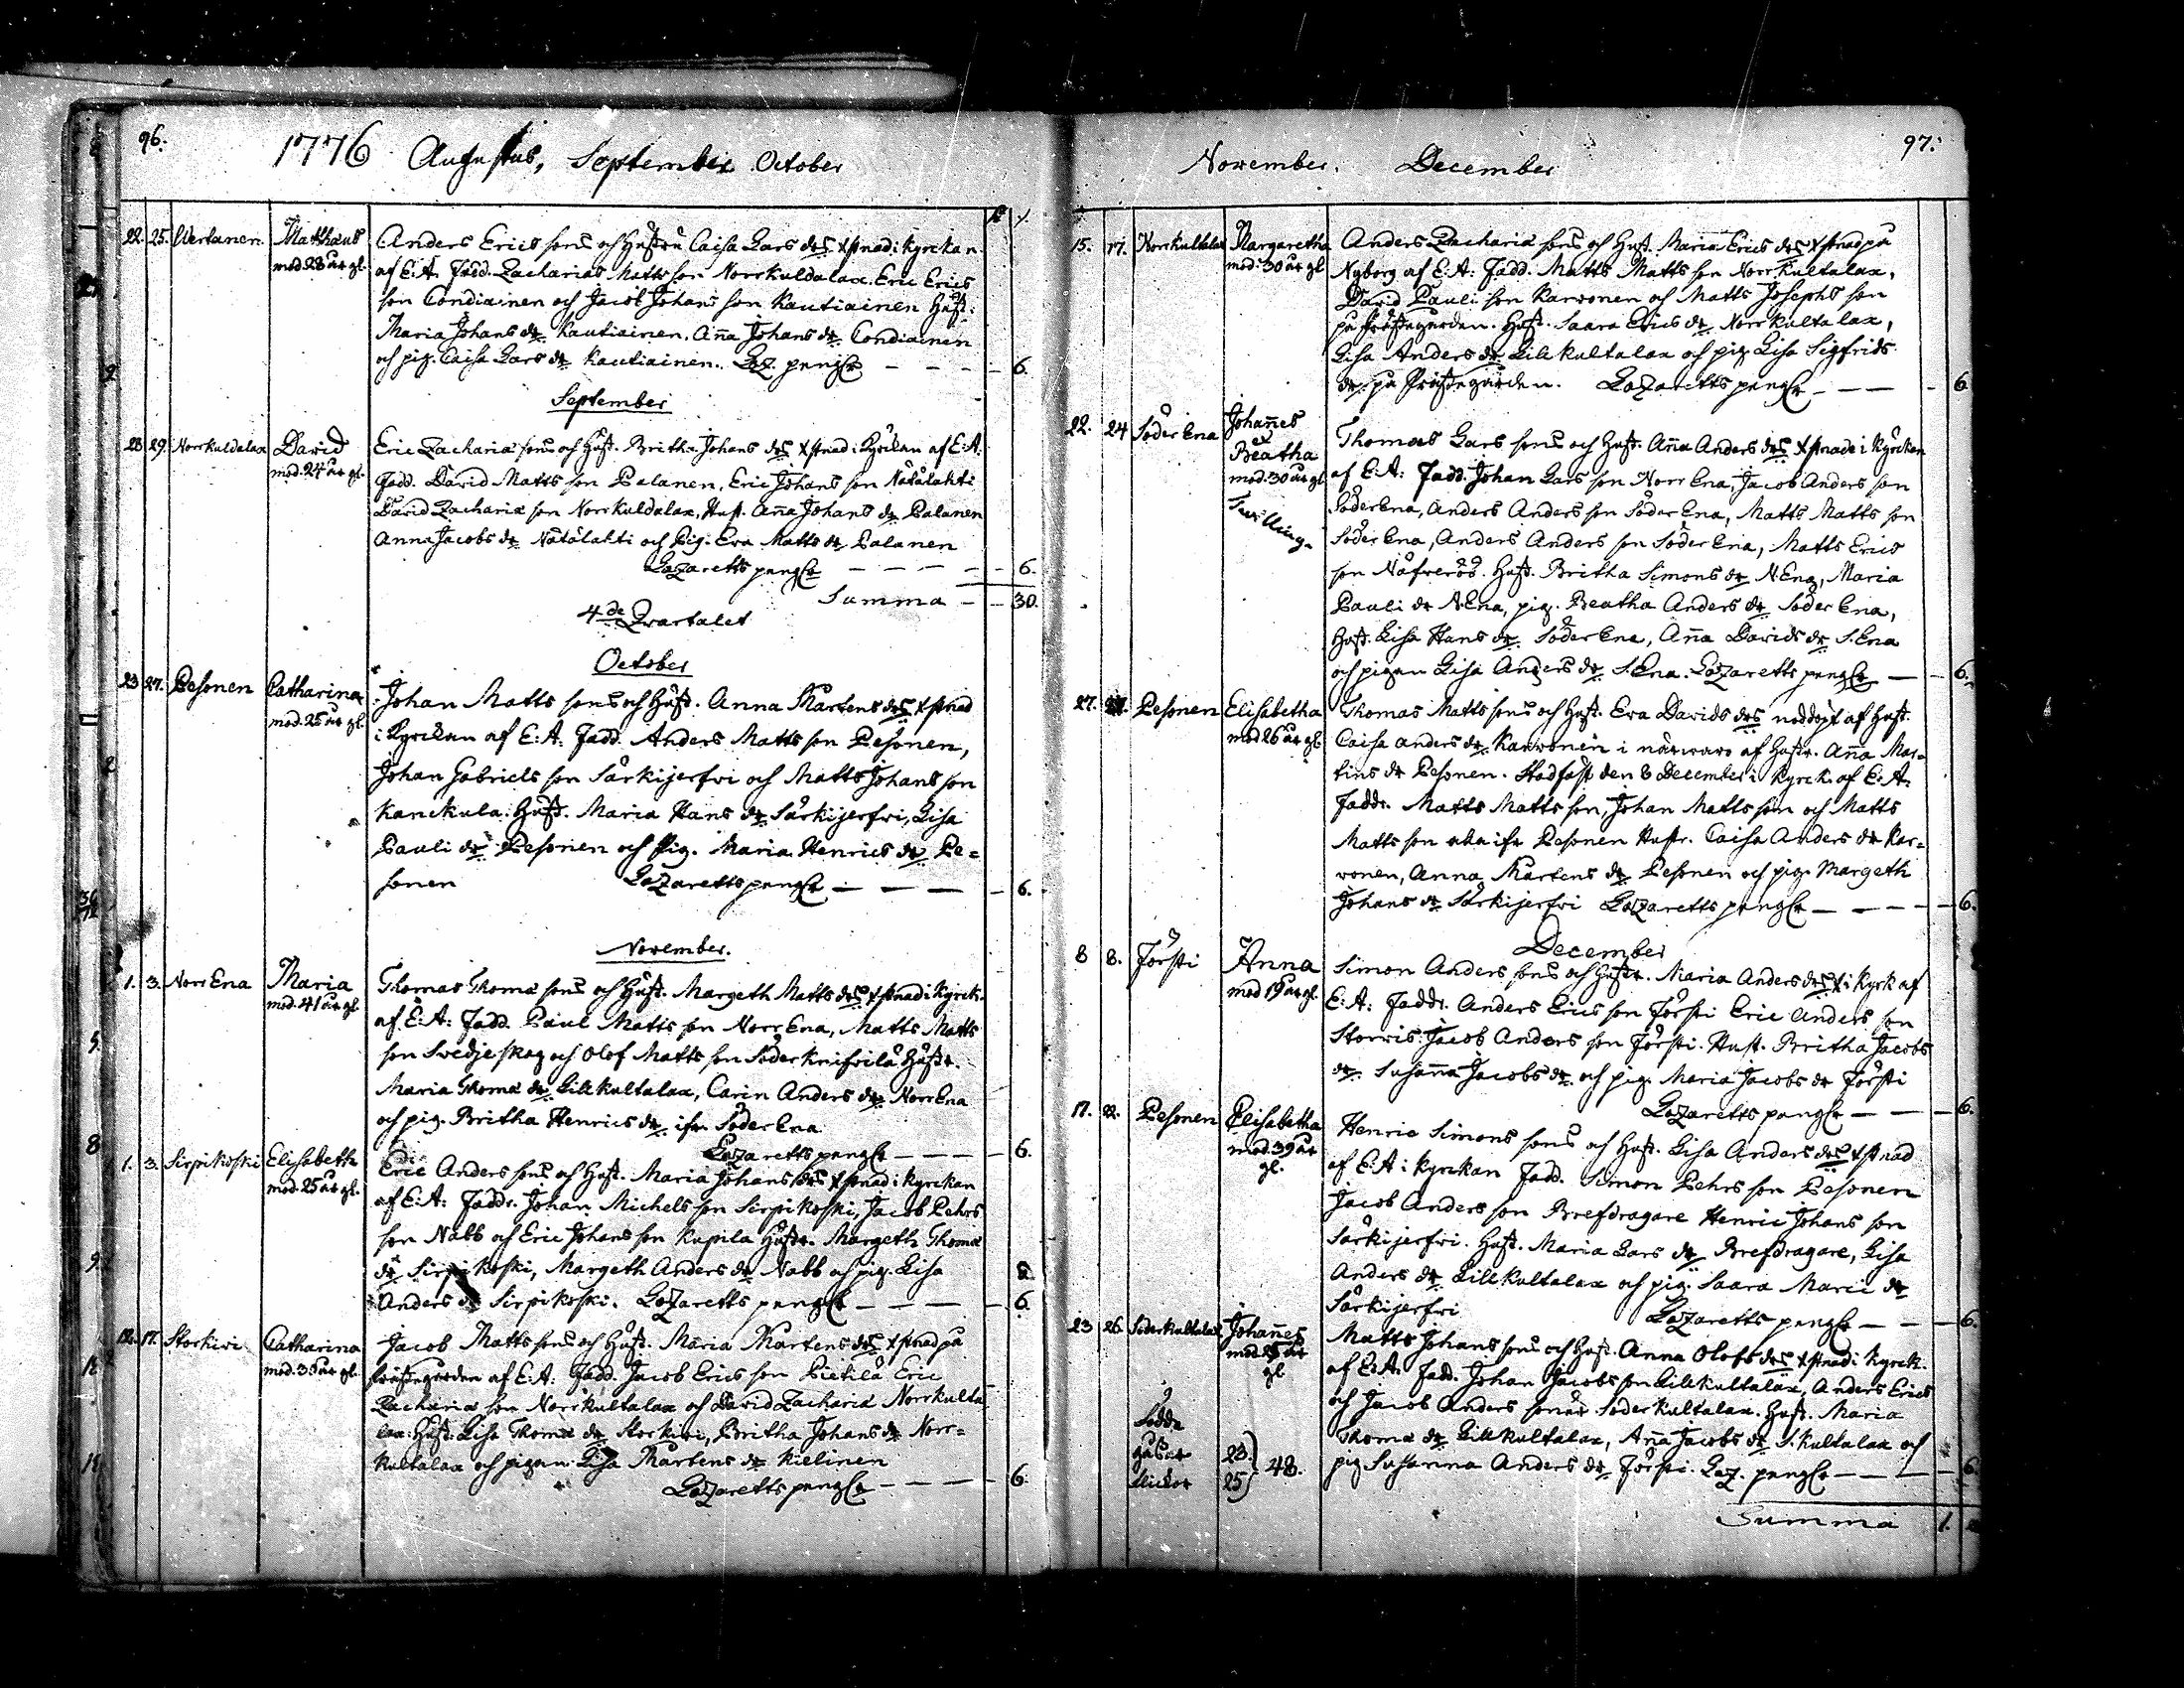 96.
1776 Augustus, September October
22. 25. Wertanen. Matthæus mod. 28 år gl.
Anders Erics sons och Hustru Caisa Lars drs xstnad i kyrckan.
af E: A: Fadd. Zacharias Matts son Norrkuldalax. Eric Erics
son Condiainen och Jacob Johans son Kautiainen Hust:
Maria Johans dr Kautiainen, Aña Johans dr Condiainen
och pig. Caisa Lars dr Kautiainen. Laz. pengr — — — 6.
September
28 29. Norrkuldalax David mod. 24 år gl.
Eric Zachariæ sons och Hust. Britha Johans drs xstnad i Kyrckan af E: A.
Fadd. David Matts son Palanen, Eric Johans son Nätälahti
David Zachariæ son Norrkuldalax, Hust. Aña Johans dr Palanen
Anna Jacobs dr Nätälahti och Pig. Eva Matts dr Palanen
Lazaretts pengr — — — — 6.
Summa — — 30.
4de Qvartalet
October
23 27. Pesonen Catharina mod. 25 år gl.
Johan Matts sons och Hust. Anna Mårtens drs xstnad
i Kyrckan af E: A. Fadd. Anders Matts son Pesonen,
Johan Gabriels son Särkijerfwi och Matts Johans son
Kanckula. Hust. Maria Hans dr Särkijerfwi, Lisa
Pauli dr Pesonen och Pig. Maria Henrics dr Pe=
sonen Lazaretts pengr — — — — 6.
November.
1. 3. Norr Ena Maria mod. 41 år gl.
Thomas Thomæ sons och Hust. Margeth Matts drs xstnad i Kyrck.
af E: A: Fadd. Paul Matts son Norr Ena, Matts Matts
son Svedjeskog och Olof Matts son Söderknifwilä Hustr.
Maria Thomæ dr Lillkultalax, Carin Anders dr Norr Ena
och pig. Britha Henrics dr ifr. Söder Ena
Lazaretts pengr — — — — 6.
1. 3. Sirpikoski Elisabeth mod. 25 år gl.
Eric Anders sons och Hust. Maria Johans drs xstnad i kyrckan
af E: A: Faddr. Johan Michels son Sirpikoski, Jacob Pehrs
son Nabb och Eric Johans son Kupila Hustr. Margeth Thomæ
dr Sirpikoski, Margeth Anders dr Nabb och pig. Lisa
Anders dr Sirpikoski. Lazaretts pengr — — — — 6.
17. Storkivi Catharina
Jacob Matts sons och Hust. Maria Mårtens drs xstnad på
Prästegården af E: A: Fadd. Jacob Erics son Pietilä Eric
Zachariæ son Norrkultalax och David Zachariæ Norrkulta
lax. Hust. Lisa Thomæ dr Storkivi, Britha Johans dr Norr=
kultalax och pigan Lisa Mårtens dr Kielinen
Lazaretts pengr — — — — 6.
97.
November. December
15. 17. Norrkultalax Margaretha mod. 30 år gl
Anders Zachariæ sons och Hust. Maria Erics drs xstnad på
Nyborg af E: A: Fadd. Matts Matts son Norrkultalax,
David Pauli son Karvonen och Matts Josephs son
på Prästegården. Hust. Saara Erics dr Norrkultalax,
Lisa Anders dr Lillkultalax och pig. Lisa Sigfrids
dr på Prästegården. Lazaretts pengr — — — — 6
22. 24 Söder Ena Johañes et Beatha mod. 30 år gl. Tvilling.
Thomas Lars sons och Hust. Aña Anders drs xstnade i kyrckan
af E: A: Fadd. Johan Lars son Norr Ena, Jacob Anders son
Söder Ena, Anders Anders son Söder Ena, Matts Matts son
Söder Ena, Anders Anders son Söder Ena, Matts Erics
son Näfverös. Hust. Britha Simons dr N. Ena, Maria
Pauli dr N. Ena, pig. Beatha Anders dr Söder Ena,
Hust. Lisa Hans dr Söder Ena, Aña Davids dr S. Ena
och pigan Lisa Anders dr S. Ena. Lazaretts pengr — — 6.
27. Pesonen Elisabetha mod 26 år gl
Thomas Matts sons och Hust. Eva Davids drs nöddöpt af Hust.
Caisa Anders dr Karvonen i närvaro af Hustr. Aña Mar=
tins dr Pesonen. Stadfäst den 8 December i kyrck. af E: A.
Faddr. Matts Matts son, Johan Matts son och Matts
Matts son alla ifr Pesonen Hustr. Caisa Anders dr Kar=
vonen, Anna Mårtens dr Pesonen och pig. Margeth
Johans dr Särkijerfwi Lazaretts pengr — — — — 6.
December
8 8. Försti Anna mod 19 år gl.
Simon Anders sons och Hustr. Maria Anders drs x i Kyrk af
E: A: Faddr. Anders Erics son Försti Eric Anders son
Storvis. Jacob Anders son Försti. Hust. Britha Jacobs
dr. Susaña Jacobs dr och pig. Maria Jacobs dr Försti
Lazaretts pengr — — — 6.
17. 22. Pesonen Elisabetha mod. 39 år gl.
Henric Simons sons och Hust. Lisa Anders drs xstnad
af E: A: i kyrckan Fadd. Simon Pehrs son Pesonen
Jacob Anders son Brefdragare Henric Johans son
Särkijerfwi. Hust. Maria Lars dr Brefdragare, Lisa
Anders dr Lillkultalax och pig. Saara Marci dr
Särkijerfwi Lazaretts pengr — — — 6.
23 26. Söderkultalax Johañes
Matts Johans sons och Hust. Anna Olofs drs xstnad i Kyrck.
af E: A: Fadd. Johan Jacobs son Lillkultalax, Anders Erics
och Jacob Anders söner Söderkultalax. Hust. Maria
Thomæ dr Lillkultalax, Aña Jacobs dr S. kultalax och
pig Susanna Anders dr Försti. Laz. pengr — — — — 6.
Födde
gåssar 23.
flickor 25 } 48.
Summa 1.